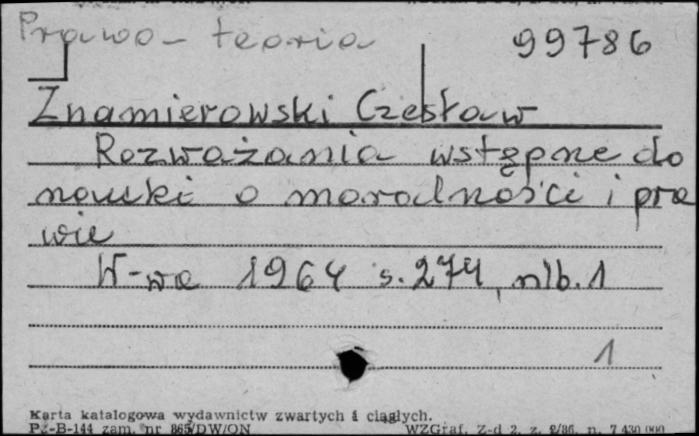 Prawo - teoria 99786
Znamierowski Czesław
Rozważania wstępne do
nauki o moralności i pra
wie
W-wa 1964 s. 274, nlb. 1
1
Karta katalogowa wydawnictw zwartych i ciągłych.
Pz-B-144 zam. nr 865/DW/ON WZGraf. Z-d 2, z. 2/86, n. 7 430 000